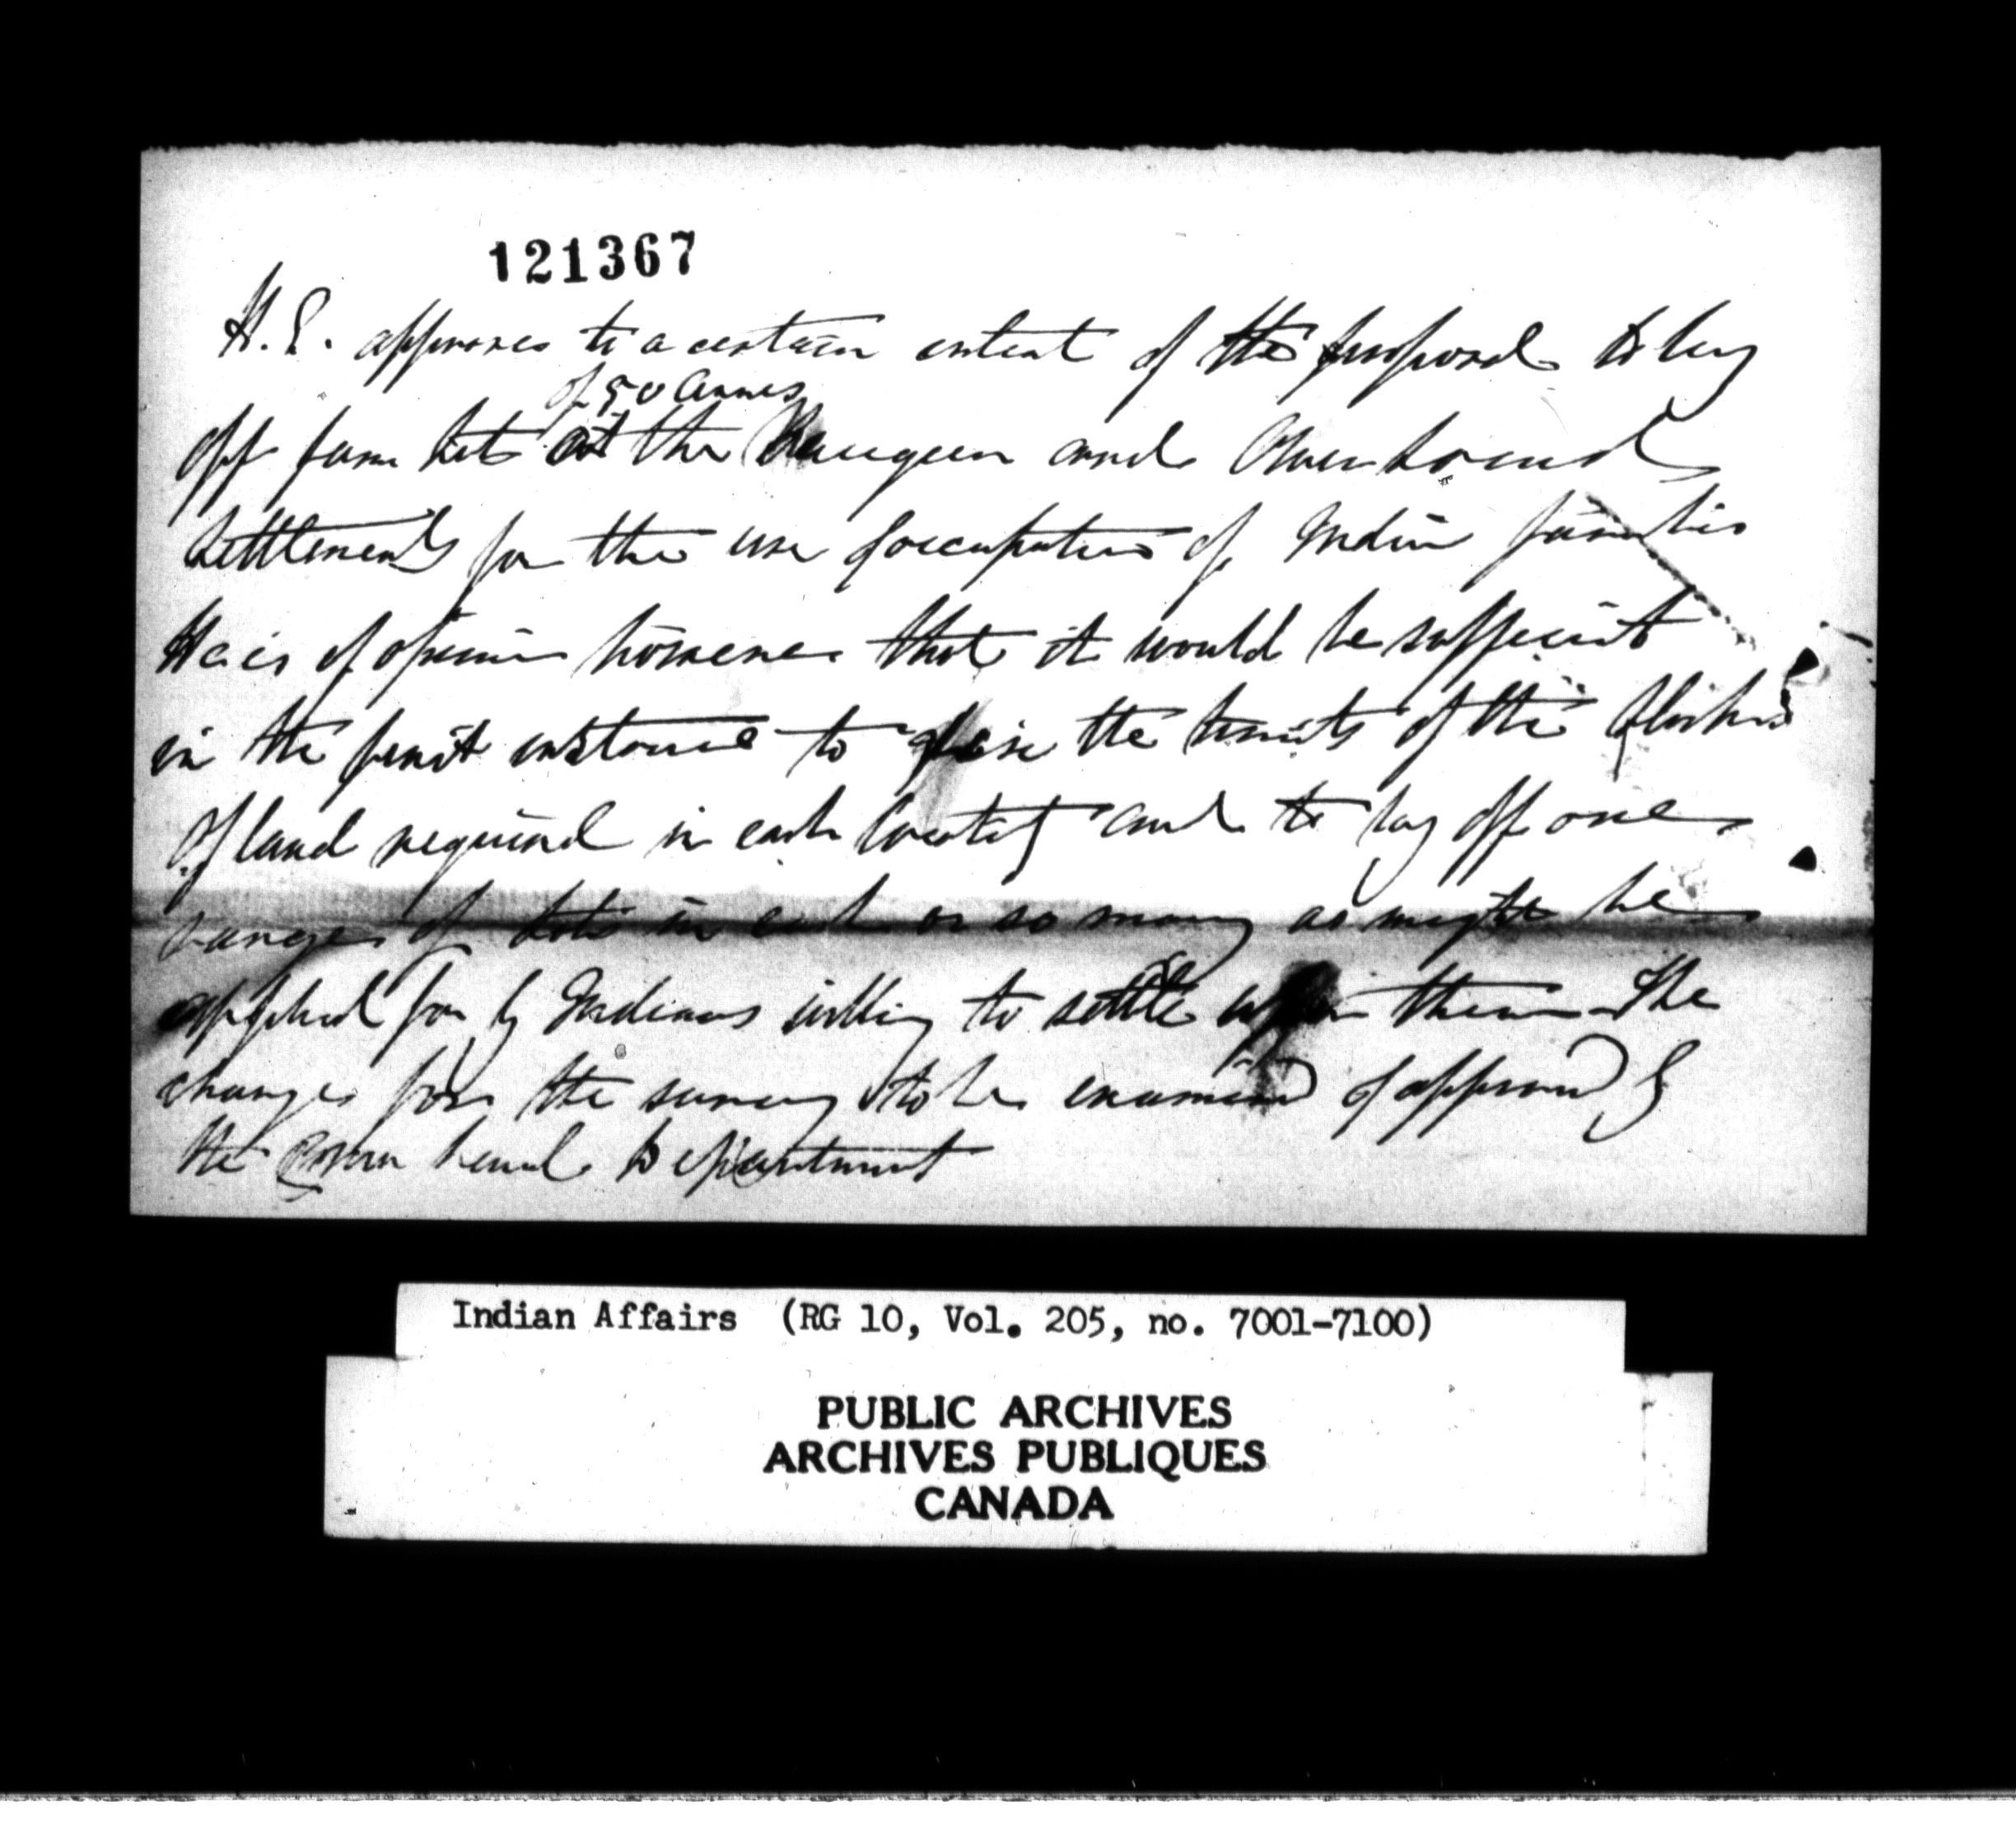 121367
H.E. approves to a certain extent of the proposal to lay
of 50 acres
off farm lots at the Saugeen and Owen Sound
Settlements for the use & occupation of Indian families
He is of opinion however that it would be sufficient
in the first instance to the limits of the
of land required in each locality and to lay off one
range of lots in each or so many as might be
applied for by Indians willing to settle upon them The
charges for the survey to be examined & approved by
the Crown Land Department
Indian Affairs (RG 10, Vol. 205, no. 7001-7100)
PUBLIC ARCHIVES
ARCHIVES PUBLIQUES
CANADA